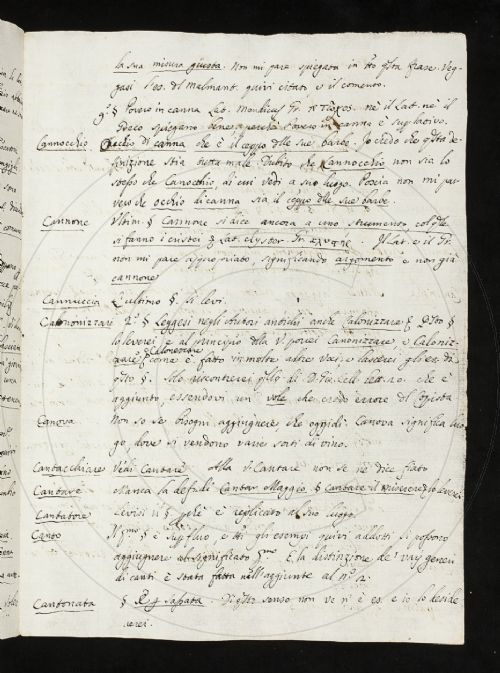 la sua misura giusta. Non mi pare spiegata in q̃ta frase. Veg-
gasi l'es. del Malmant. quivi citato e il comento.
9.° § Povero in canna Lat. Mendicus Gr. πτωχος. ne il Lat. ne il
Greco spiegano bene perche Povero in canna è superlativo.
Cannocchio Occhio di canna che è il ceppo delle sue barbe. Io credo che q̃ta de-
finizione stia detta male. Dubito che Cannocchio non sia lo
stesso che Canocchio, di cui vedi a suo luogo. Poscia non mi par
vero che occhio di canna sia il ceppo delle sue barbe.
Cannone Ultim. § Cannone si dice ancora a uno strumento col q̃le
si fanno i cristei Lat. clyster. Gr. Il Lat. e il Gr.
non mi pare appropriato, significando argomento e non già
cannone
Cannuccia L'ultimo §. si levi.
Calonizzare 2.° § Leggesi negli scrittori antichi anche Calonizzare
lo leverei e al principio della V. porrei Canonizzare e Caloniz-
zare come è fatto in molte altre voci e lascerei gli es. di
q̃sto §. Ma riscontrerei q̃llo di che è
aggiunto essendovi un vole che credo errore del Copista
Canova Non so se bisogni aggiungnere che oggidi Canova significa luo-
go dove si vendono varie sorti di vino.
Cantacchiare Vedi Cantare alla V. Cantare non se ne dice fiato
Cantare Manca la defidi Cantar Maggio. § cantare il miserere lo leverei
Cantatore Levisi il § perche è replicato al suo luogo.
Canto è superfluo e gli esempi quivi addotti si possono
aggiugnere al significato. E la distinzione de' varj generi
di canti è stata fatta nell'aggiunte al n.° 2.
Cantonata § Di q̃sto senso non ve n'è es. e io lo deside-
rerei.